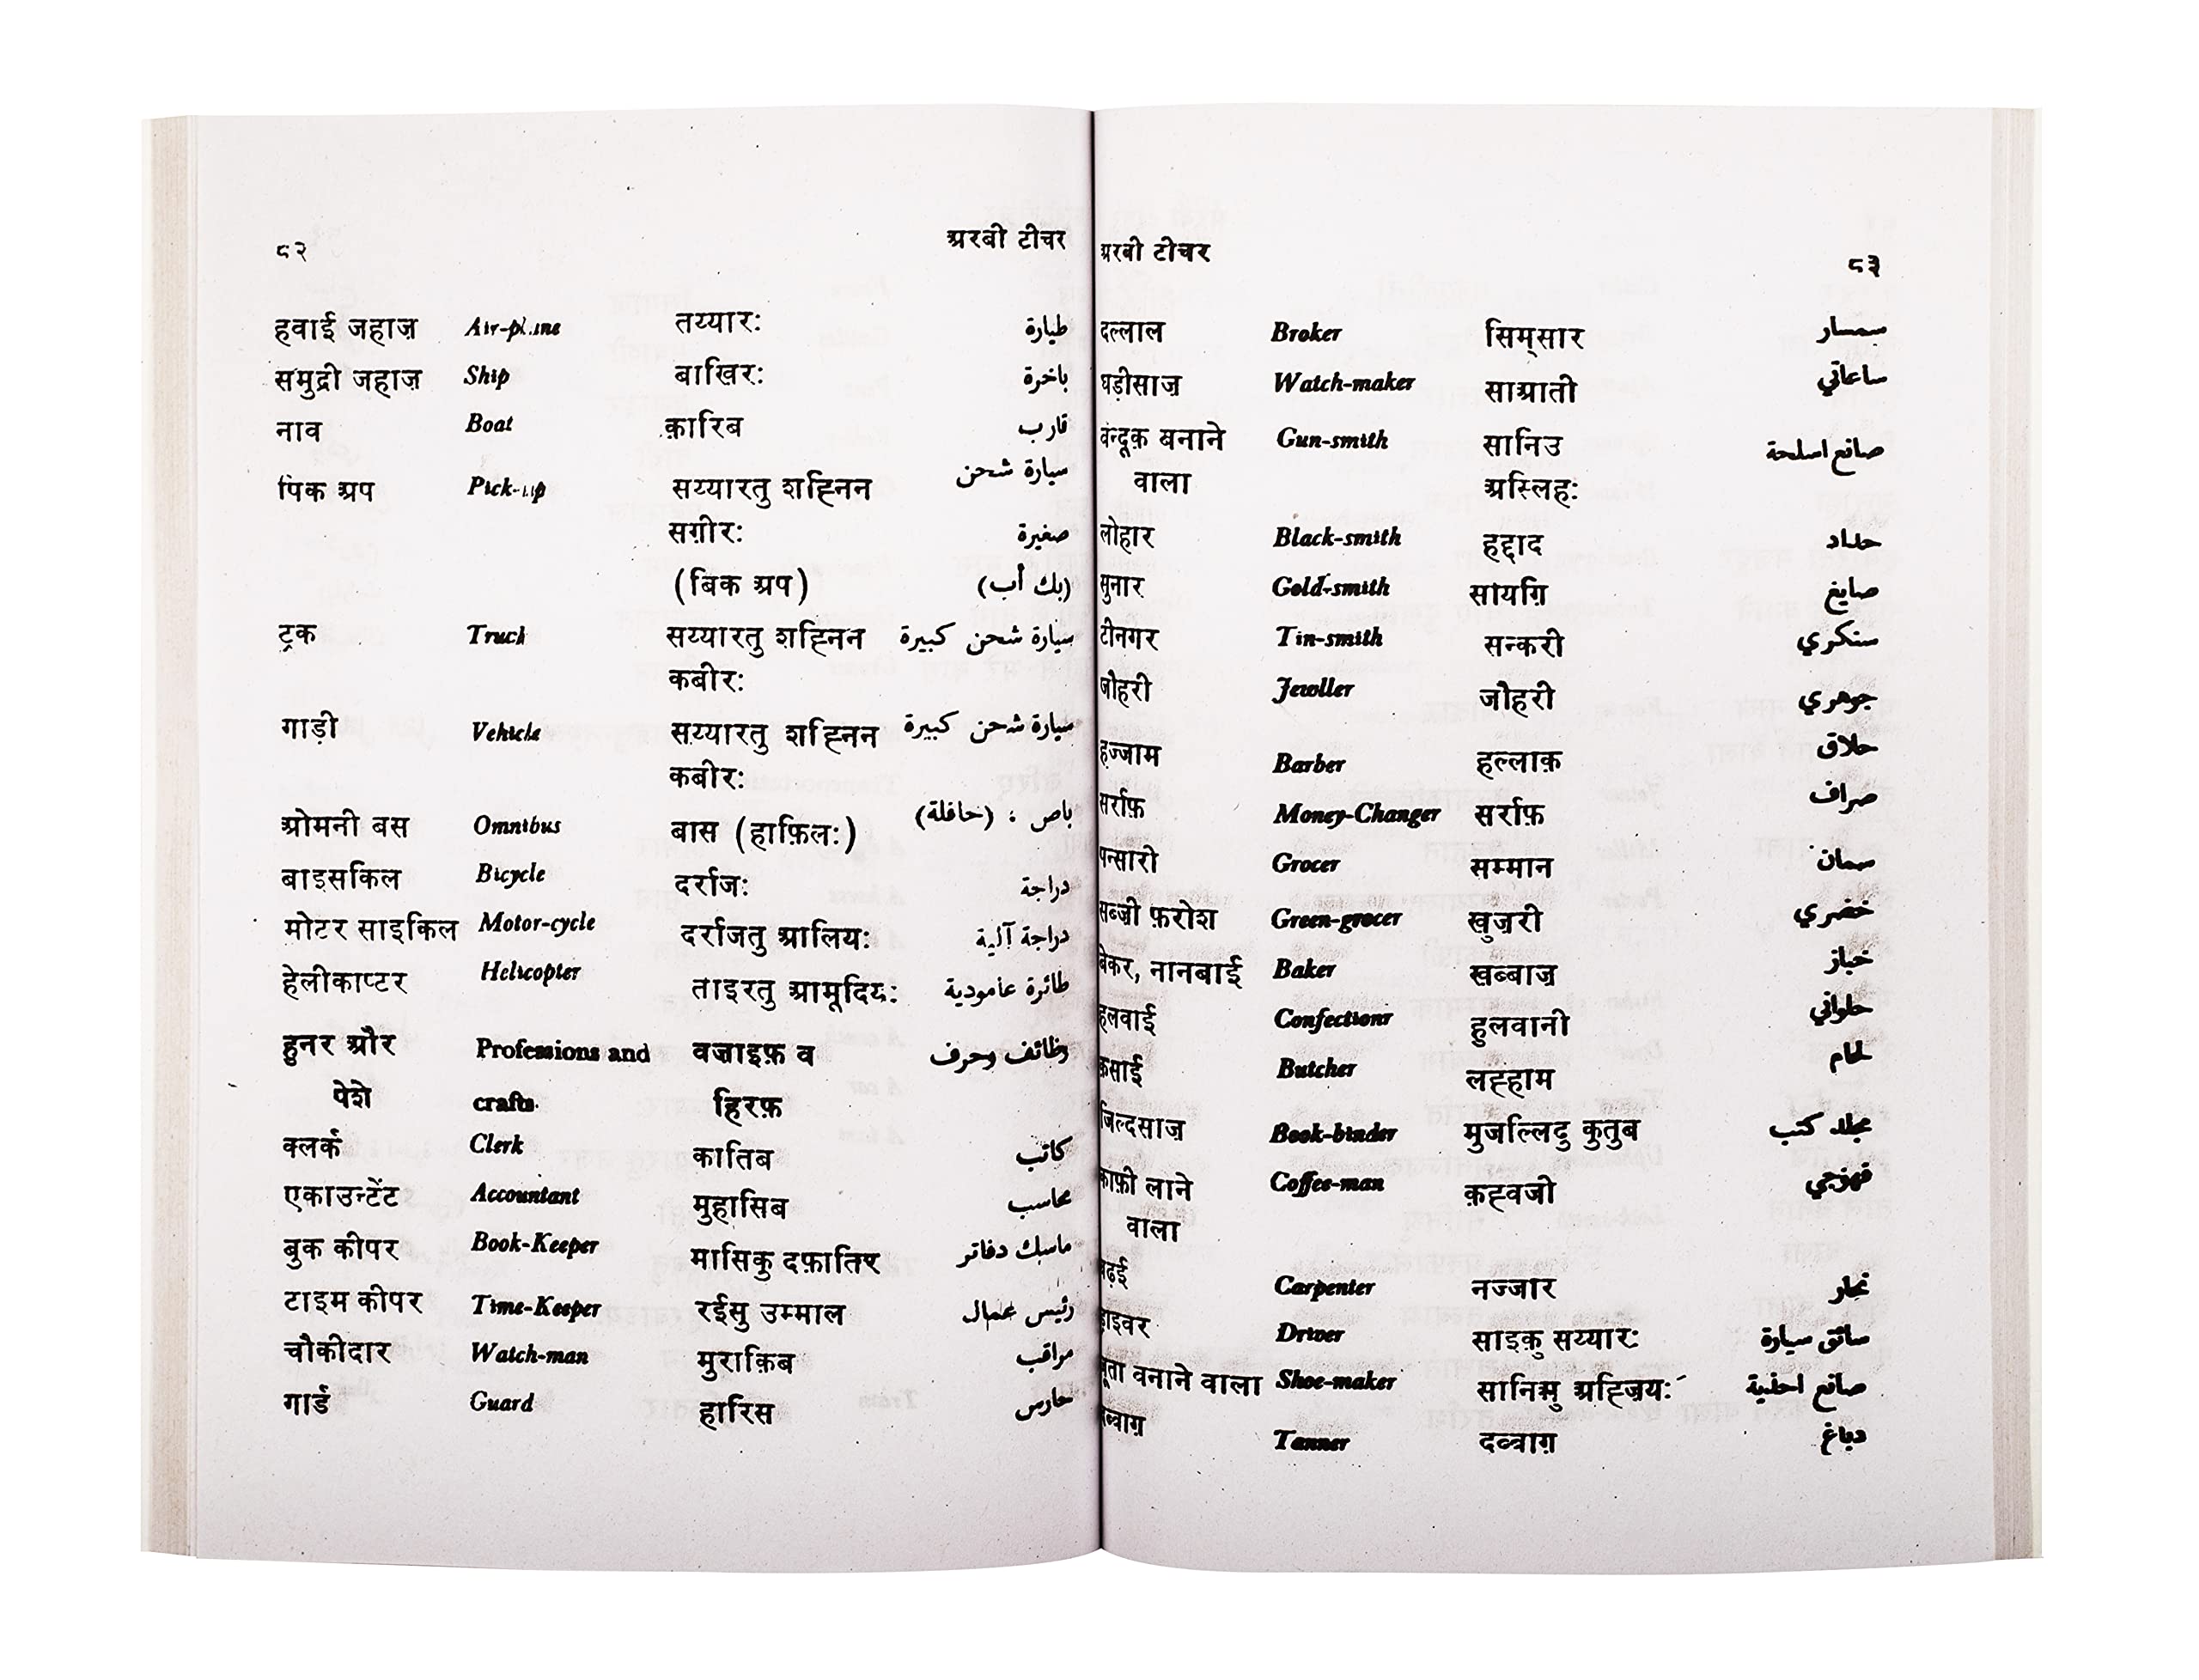 ८२ अरबी टीचर
हवाई जहाज़ Air-plane तय्यारः طيارة
समुद्री जहाज़ Ship बाखिरः باخرة
नाव Boat क़ारिब قارب
पिक अप Pick-up सय्यारतु शह्निन سيارة شحن
सग़ीरः صغيرة
(बिक अप) (بك أب)
ट्रक Truck सय्यारतु शह्निन سيارة شحن كبيرة
कबीरः
गाड़ी Vehicle सय्यारतु शह्निन سيارة شحن كبيرة
कबीरः
ओमनी बस Omnibus बास (हाफ़िलः) باص ، (حافلة)
बाइसकिल Bicycle दर्राजः دراجة
मोटर साइकिल Motor-cycle दर्राजतु आलियः دراجة آلية
हेलीकाप्टर Helicopter ताइरतु आमूदियः طائرة عامودية
हुनर और Professions and वज़ाइफ़ व وظائف وحرف
पेशे crafts. हिरफ़
क्लर्क Clerk कातिब كاتب
एकाउन्टेंट Accountant मुहासिब محاسب
बुक कीपर Book-Keeper मासिकु दफ़ातिर ماسك دفاتر
टाइम कीपर Time-Keeper रईसु उम्माल رئيس عمال
चौकीदार Watch-man मुराक़िब مراقب
गार्ड Guard हारिस حارس
अरबी टीचर ८३
दल्लाल Broker सिम्सार سمسار
घड़ीसाज़ Watch-maker साआती ساعاتي
बन्दूक़ बनाने Gun-smith सानिउ صانع اسلحة
वाला अस्लिहः
लोहार Black-smith हद्दाद حداد
सुनार Gold-smith सायग़ि صايغ
टीनगर Tin-smith सन्करी سنكري
जौहरी Jewller जौहरी جوهري
हज्जाम Barber हल्लाक़ حلاق
सर्राफ़ Money-Changer सर्राफ़ صراف
पन्सारी Grocer सम्मान سمان
सब्ज़ी फ़रोश Green-grocer खुज़री خضري
बेकर, नानबाई Baker खब्बाज़ خباز
हलवाई Confectionr हुलवानी حلواني
क़साई Butcher लह्हाम لحام
जिल्दसाज़ Book-binder मुजल्लिदु कुतुब مجلد كتب
काफ़ी लाने Coffee-man क़ह्वजी قهوجي
वाला
बढ़ई Carpenter नज्जार نجار
ड्राइवर Driver साइकु सय्यारः سائق سيارة
जूता बनाने वाला Shoe-maker सानिअु अह्ज़ियः صانع احذية
दब्बाग़ Tanner दब्बाग़ دباغ